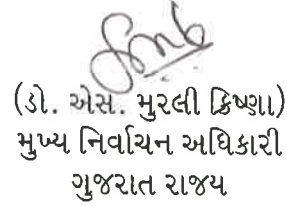 (ડો. એસ. મુરલી ક્રિષ્ણા)
મુખ્ય નિર્વાચન અધિકારી
ગુજરાત રાજય